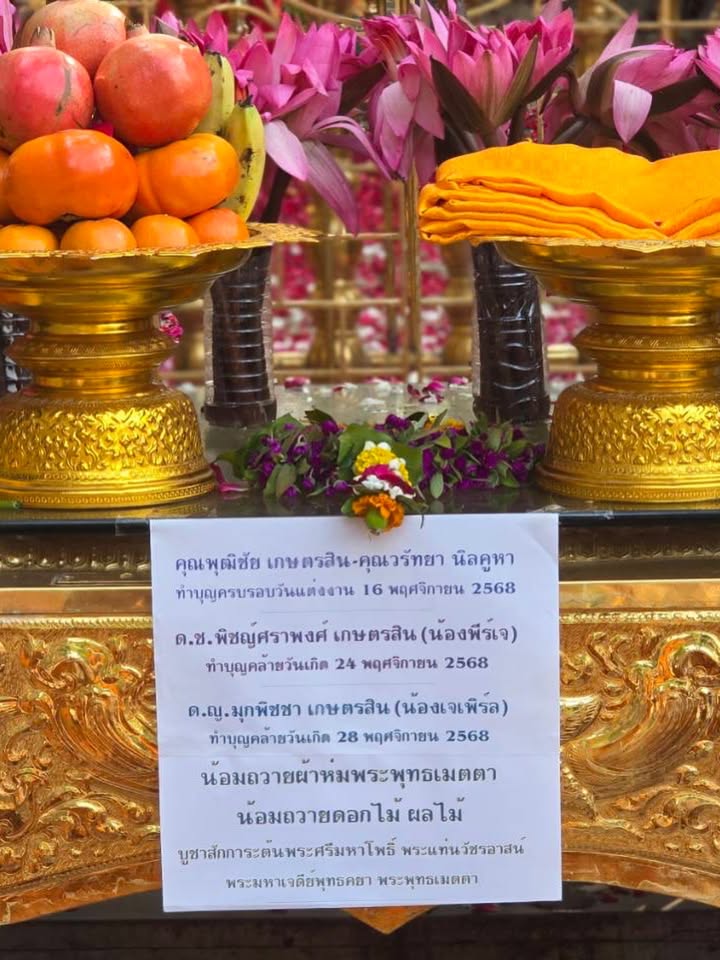 คุณพุฒิชัย เกษตรสิน-คุณวรัทยา นิลคูหา
ทำบุญครบรอบวันแต่งงาน 16 พฤศจิกายน 2568
ด.ช.พิชญ์ศราพงศ์ เกษตรสิน (น้องพีร์เจ)
ทำบุญคล้ายวันเกิด 24 พฤศจิกายน 2568
ด.ญ.มุกพิชชา เกษตรสิน (น้องเจเพิร์ล)
ทำบุญคล้ายวันเกิด 28 พฤศจิกายน 2568
น้อมถวายผ้าห่มพระพุทธเมตตา
น้อมถวายดอกไม้ ผลไม้
บูชาสักการะต้นพระศรีมหาโพธิ์ พระแท่นวัชรอาสน์
พระมหาเจดีย์พุทธคยา พระพุทธเมตตา